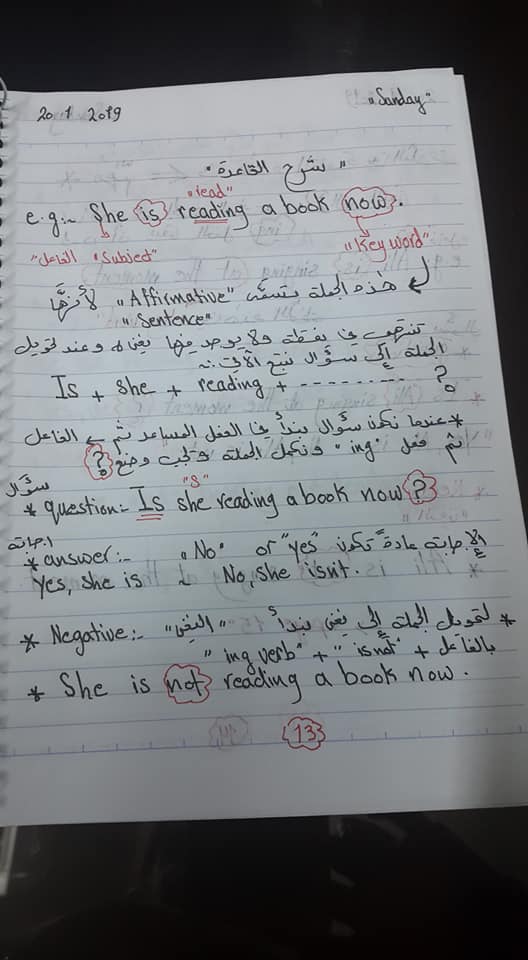 20 1 2019 "Sunday"
"شرح القاعدة"
"read"
e.g:- She is reading a book now.
"الفاعل" "Subject" "Key word"
هذه الجملة تسمى "Affirmative" لأنها
"Sentence"
تنتهي في نقطة ولا يوجد فيها نفي وعند تحويل
الجملة إلى سؤال نتبع الآتي :-
Is + she + reading + ------- ?
* عندما نكون سؤال نبدأ في الفعل المساعد ثم الفاعل
ثم فعل "ing" ونكمل الجملة ويجب وضع ?
سؤال "S"
* question:- Is she reading a book now ?
اجابة
* answer:- "No" or "yes" الإجابة عادةً تكون
Yes, she is No, she isn't.
* Negative:- "النفي" * لتحويل الجملة إلى نفي نبدأ
بالفاعل + "is not" + "ing verb"
* She is not reading a book now.
13